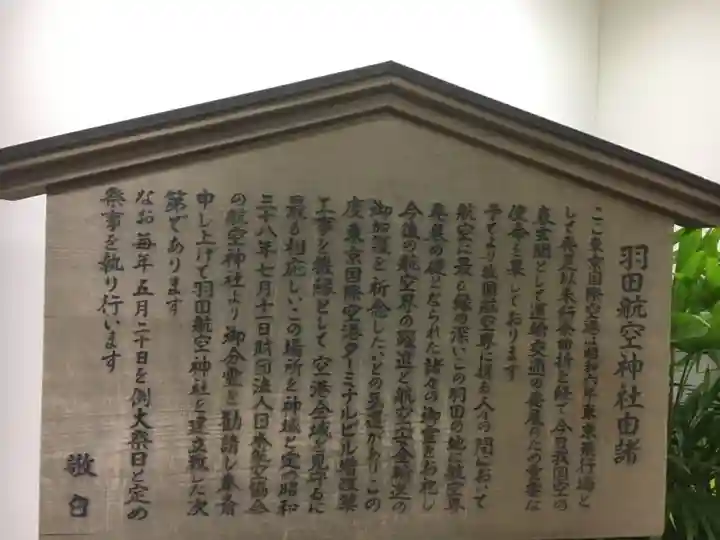 羽田航空神社由諸
ここ東京国際空港は昭和六年東京飛行場と
して発足以来行余曲折を経て今日我国空の
表玄関として運輸交通の発展のため重要な
使命を果しております
予てより我国航空界に携る人々の間において
航空に最も縁の深いこの羽田の地に航空界
発展の礎となられた諸々の御霊をお祀し
今後の航空界の躍進と航空安全輸送の
御加護を祈念したいとの要望がありこの
度東京国際空港ターミナルビル増改築
工事を機縁として空港全域を見守るに
最も相応しいこの場所を神域と定め昭和
三十八年七月十一日財団法人日本航空協会
の航空神社より御分霊を勧請し奉斎
申し上げて羽田航空神社を建立致した次
第であります
なお毎年五月二十日を例大祭日と定め
祭事を執り行います
敬白